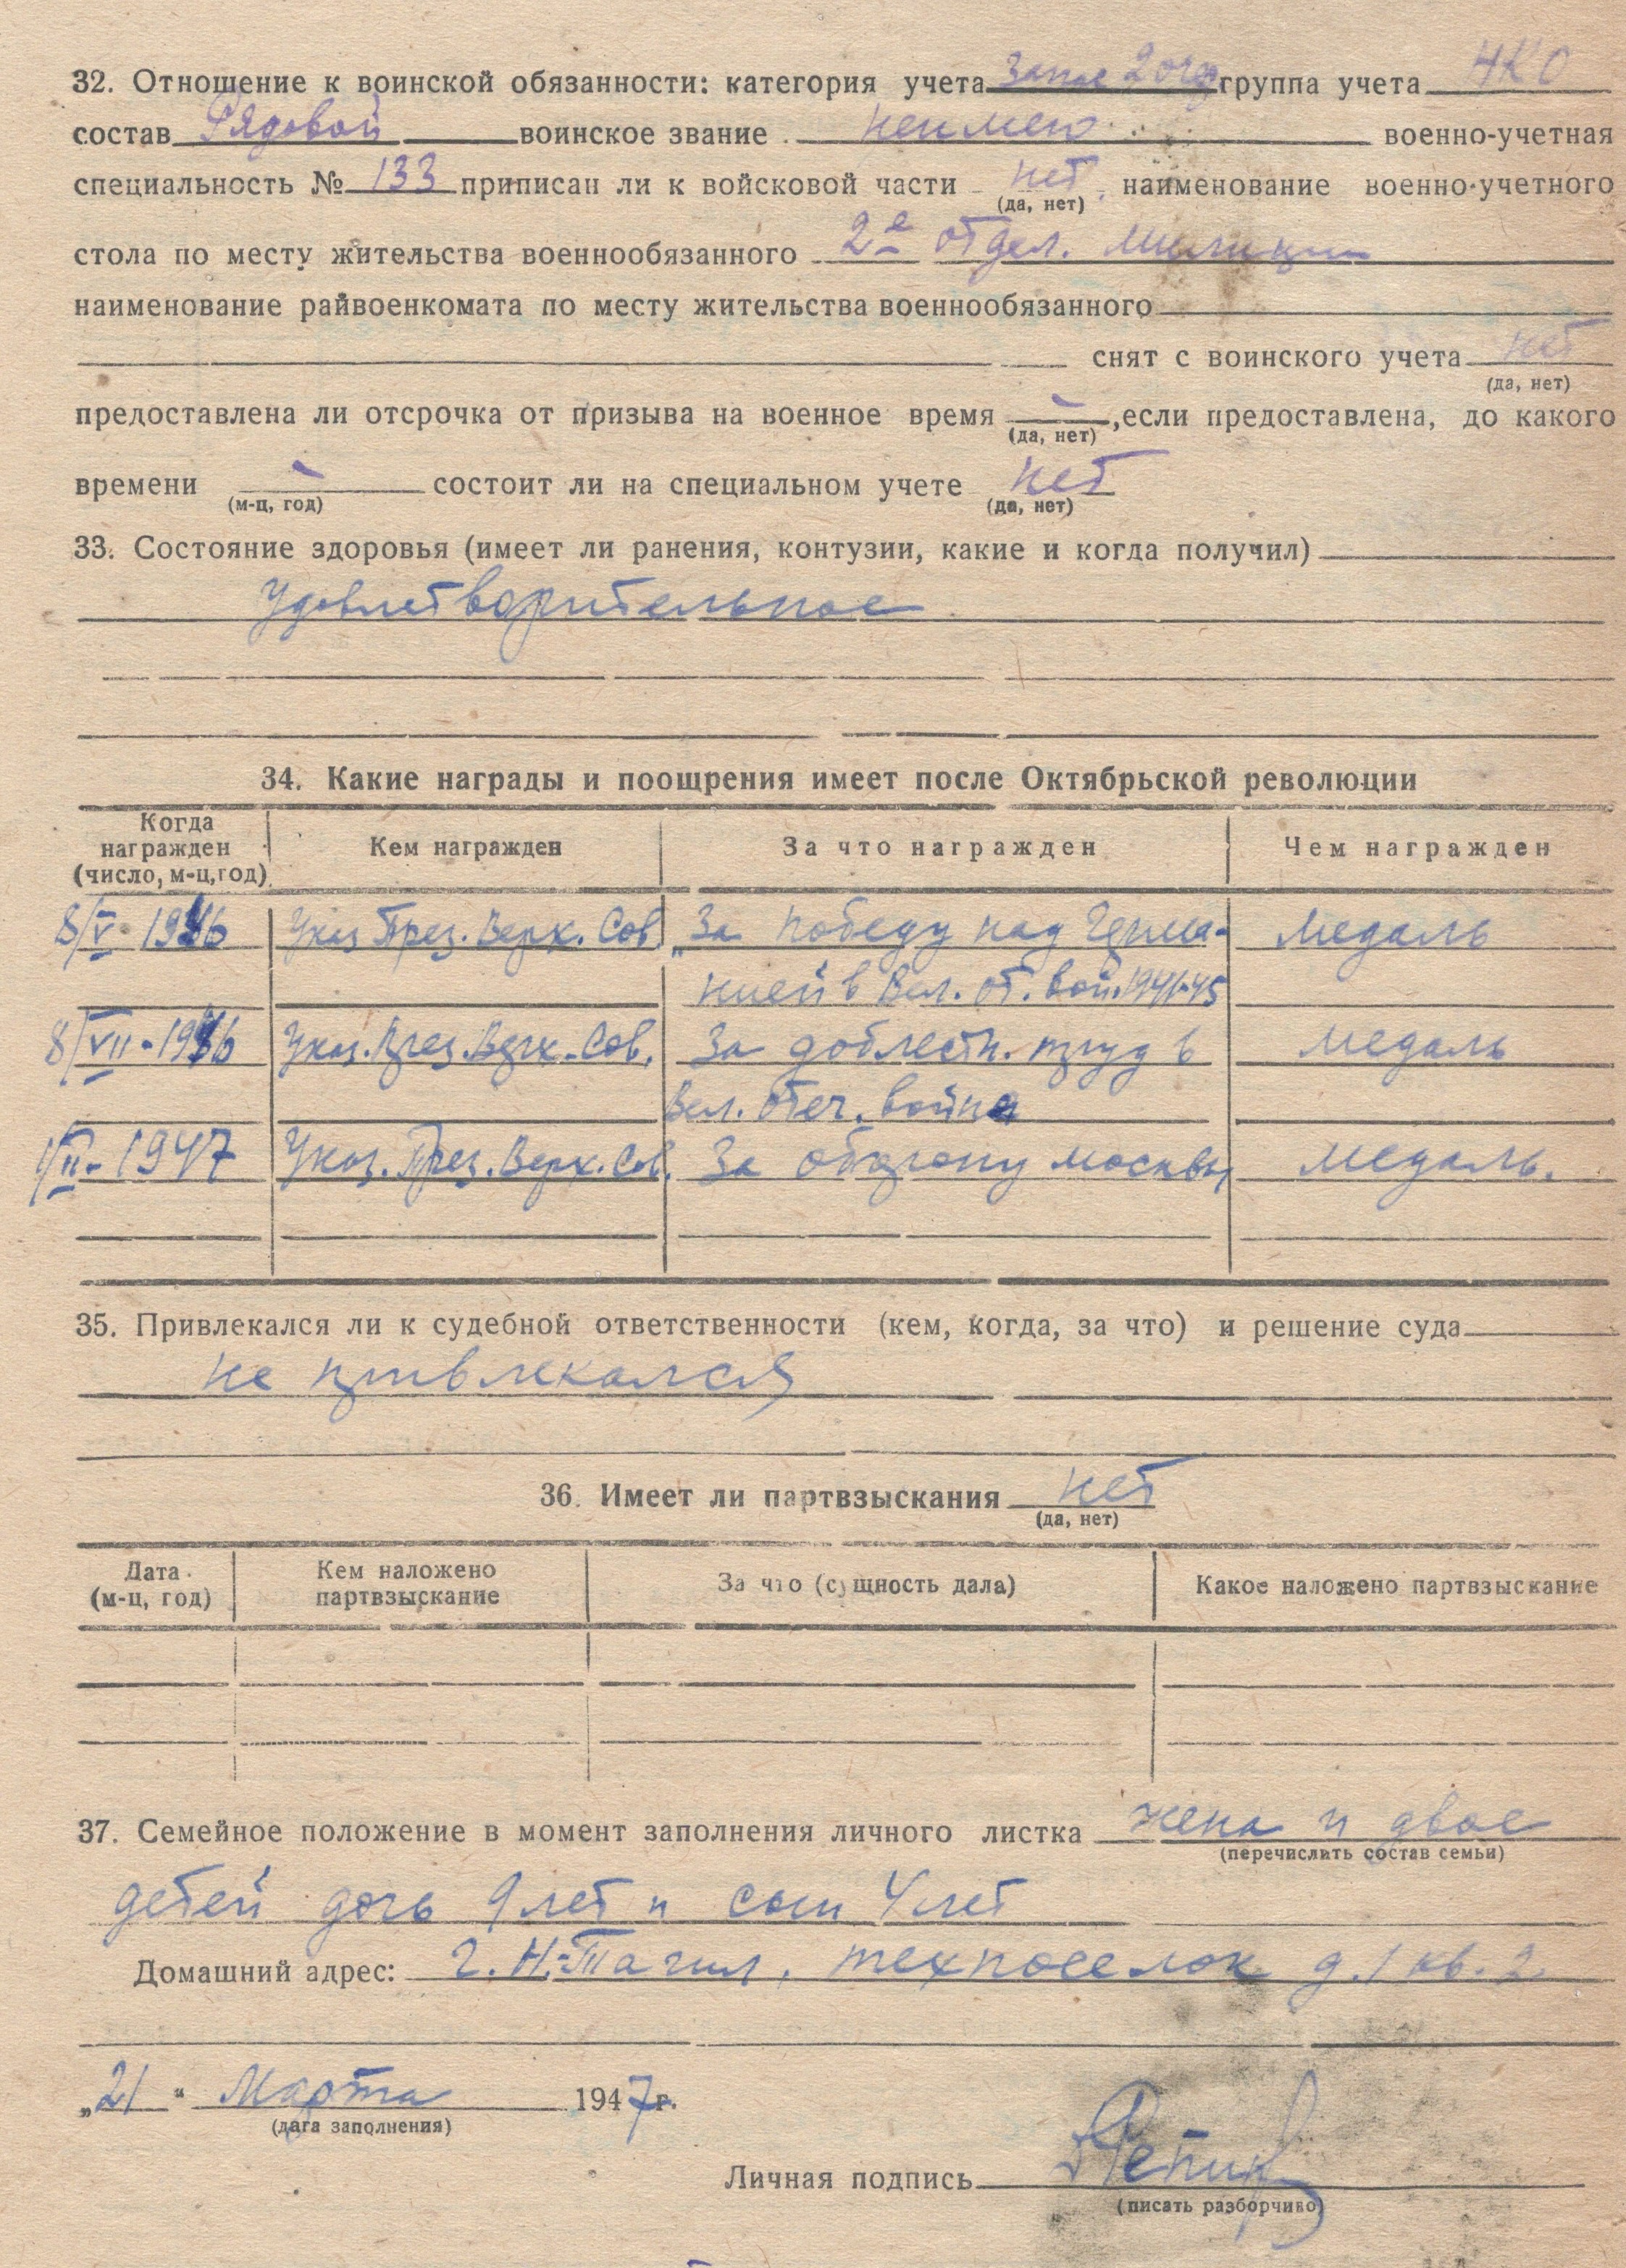 32. Отношение к воинской обязанности: категория учета Запас 2 очер группа учета 4КО
состав Рядовой воинское звание неимею военно-учетная
специальность № 133 приписан ли к войсковой части нет наименование военно-учетного
(да, нет)
стола по месту жительства военнообязанного 2е отдел. милиции
наименование райвоенкомата по месту жительства военнообязанного
снят с воинского учета нет
(да, нет)
предоставлена ли отсрочка от призыва на военное время - ,если предоставлена, до какого
(да, нет)
времени - состоит ли на специальном учете нет
(м-ц, год) (да, нет)
33. Состояние здоровья (имеет ли ранения, контузии, какие и когда получил)
Удовлетворительное
34. Какие награды и поощрения имеет после Октябрьской революции
Когда награжден (число, м-ц, год) Кем награжден За что награжден Чем награжден
8/V-1946 Указ През. Верх. Сов „За победу над Герма- медаль
нией в Вел. от. вой. 1941-45
8/VII-1946 Указ. През. Верх. Сов. За доблестн. труд в медаль
Вел. отеч. война
1/II-1947 Указ. През. Верх. Сов. За оборону москвы медаль.
35. Привлекался ли к судебной ответственности (кем, когда, за что) и решение суда
не привлекался
36. Имеет ли партвзыскания нет
(да, нет)
Дата (м-ц, год) Кем наложено партвзыскание За что (сущность дала) Какое наложено партвзыскание
37. Семейное положение в момент заполнения личного листка жена и двое
(перечислить состав семьи)
детей дочь 9 лет и сын 4 лет
Домашний адрес: г. Н-Тагил, техпоселок д. 1 кв. 2.
„21“ Марта 1947 г.
(дата заполнения)
Личная подпись
(писать разборчиво)